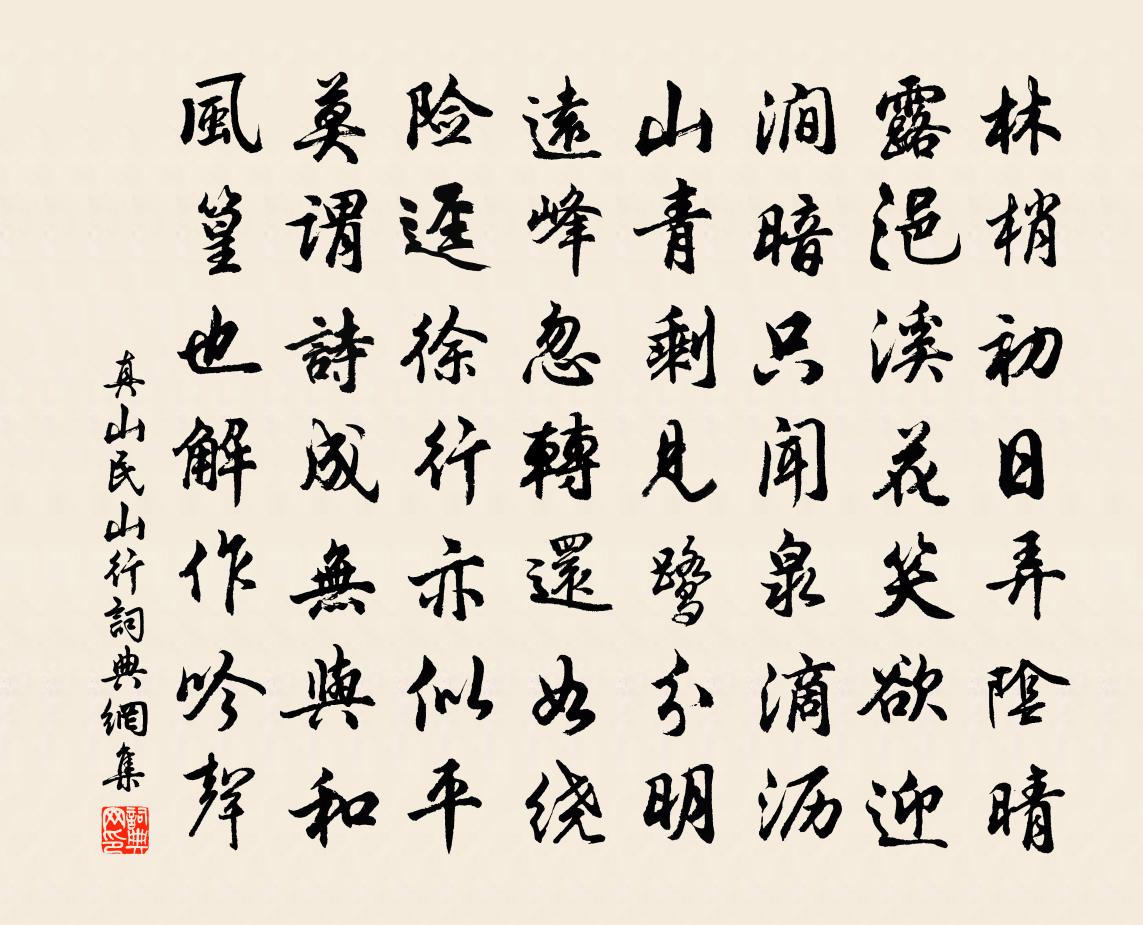 林梢初日弄陰晴
露浥溪花笑欲迎
澗暗只聞泉滴沥
山青剩見鷺分明
遠峰忽轉還如绕
险逕徐行亦似平
莫謂詩成無與和
風篁也解作吟聲
真山民山行詞典網集
詞典網印